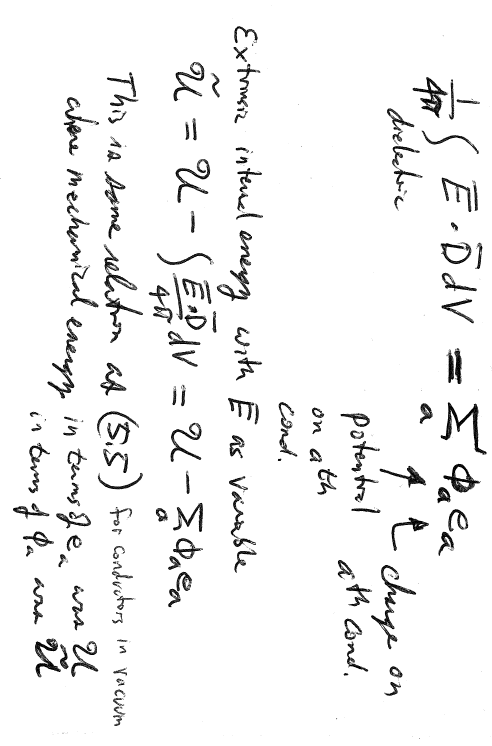 1/4π ∫ Ē·D̄ dV = Σ ϕₐ eₐ
dielectric a
potential on ath cond.
charge on ath cond.
Extrinsic internal energy with Ē as variable
Ũ = U − ∫ Ē·D̄/4π dV = U − Σₐ ϕₐ eₐ
This is same relation as (5.5) for conductors in vacuum
where mechanical energy in terms of eₐ was U
in terms of ϕₐ was Ũ